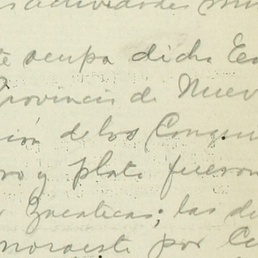 actividades
te ocupa dicha
Provincia de Nuev
ión de los Conqu
ro y plata fueron
Zacatecas; las de
noroeste por